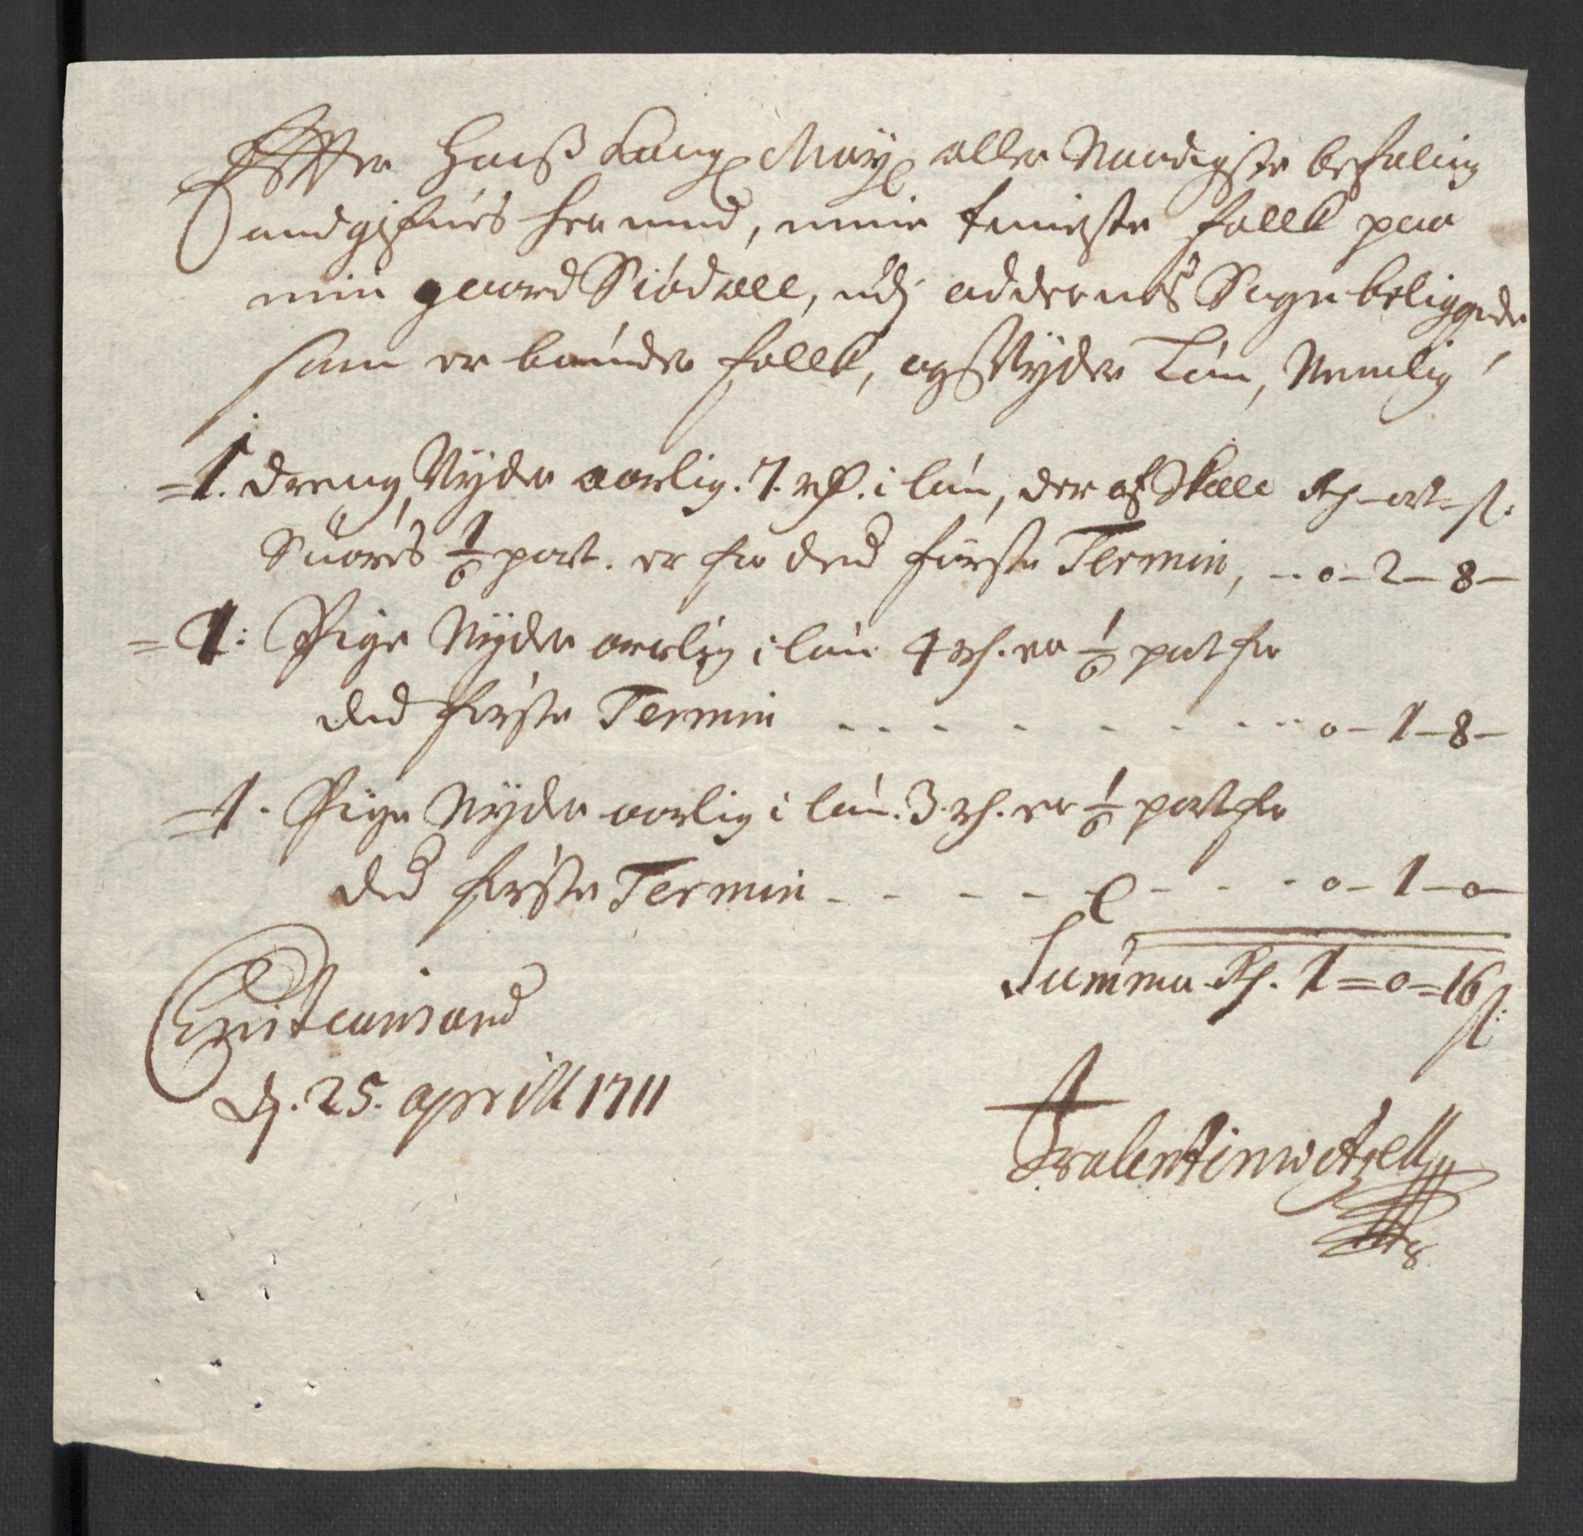 Effter Hans Kongl Mayts aller Naadigste befaling
andgifues her med, mine tieniste follk paa
min gaard Siødall, udj oddernes Sogn beliggende
som er bønder follk, og Nyder Løn, Nemlig
1. dreng Nyder aarlig. 7. rd. i løn, der af Skall Rd - ort - s:
Suares 1/6 part. er for ded første Termin, - 0 - 2 - 8 -
1: Pige Nyder aarlig i løn 4 rd. er 1/6 part for
ded første Termin - - - - - - 0 - 1 - 8 -
1. Pige Nyder aarlig i løn. 3 rd. er 1/6 part for
ded første Termin - - - - - - 0 - 1 - 0 -
Summa Rd. 1 = 0 = 16 s:
Cristiansand
d. 25. aprill 1711
Valentin wetzell